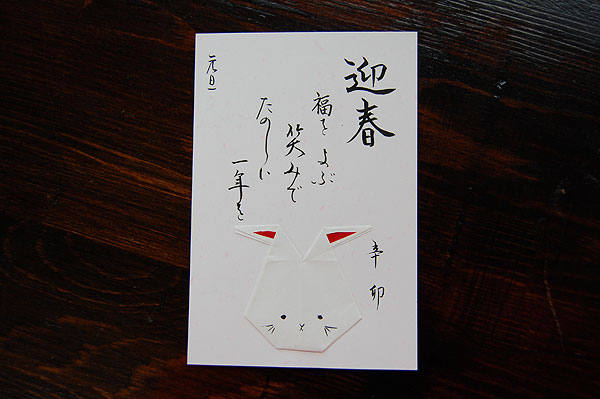 迎春
福をよぶ
笑みで
たのしい
一年を
辛卯
元旦